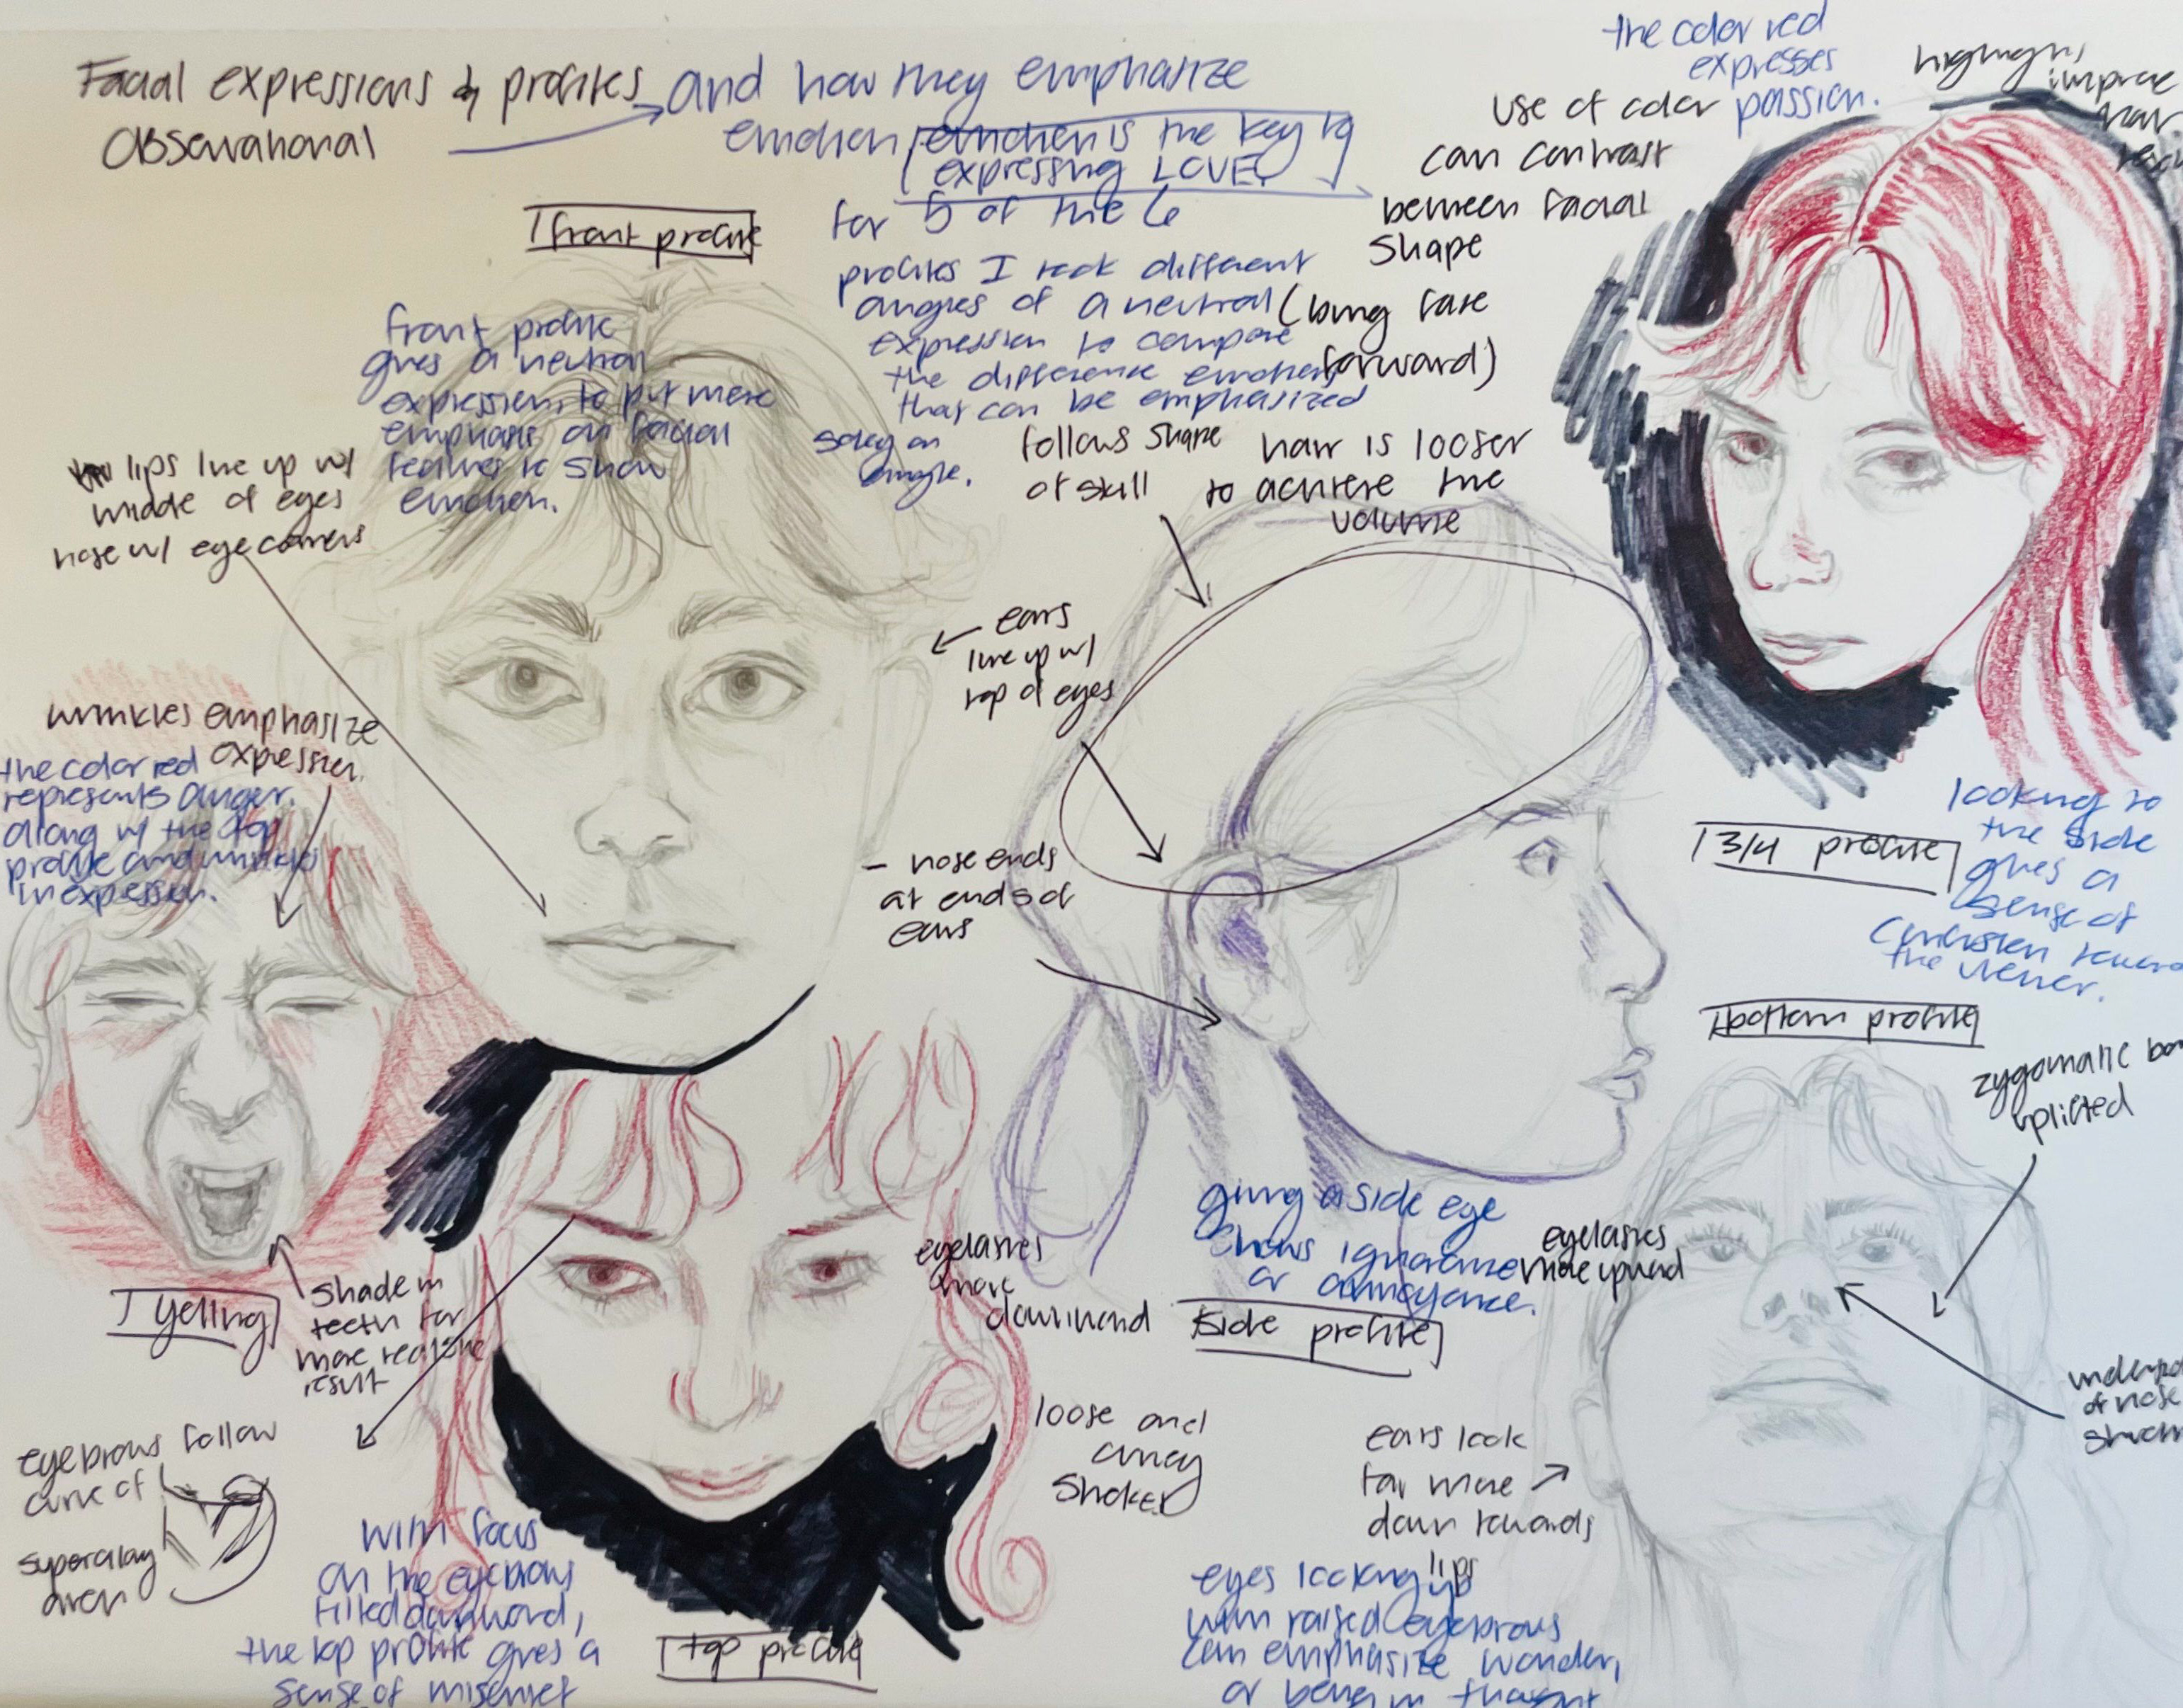 Facial expressions & profiles
Observational
and how they emphasize
emotion
emotion is the key to
expressing LOVE!
for 5 of the 6
profiles I took different
angles of a neutral (being face
expression to compare forward)
the difference emotion
that can be emphasized
solely on
angle.
the color red
expresses
passion.
use of color
can contrast
between facial
shape
highlights
improve
hair
front profile
front profile
gives a neutral
expression, to put more
emphasis on facial
features to show
emotion.
lips line up w/
middle of eyes
nose w/ eye corners
follows shape
of skull
hair is looser
to achieve the
volume
ears
line up w/
top of eyes
- nose ends
at ends of
ears
wrinkles emphasize
expression.
the color red
represents anger.
along w/ the top
profile and wrinkles
in expression.
yelling
shade in
teeth for
more realistic
result
3/4 profile
looking to
the side
gives a
sense of
confusion
the viewer.
bottom profile
zygomatic
uplifted
eyelashes
more upward
of nose
ears look
far more
down towards
lips
eyes looking up
with raised eyebrows
can emphasize wonder,
or being in thought
giving a side eye
shows ignorance
or annoyance.
side profile
eyelashes
more
downward
loose and
eyebrows follow
curve of
with focus
on the eyebrows
tilted downward,
the top profile gives a
sense of
top profile